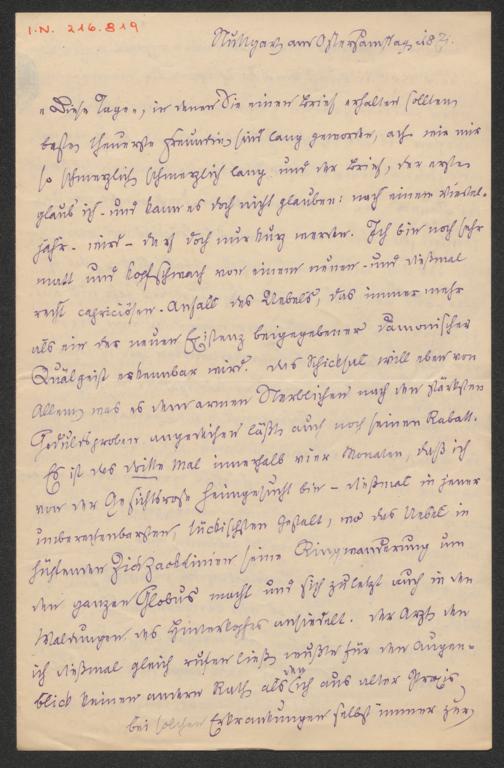 I.N. 216.819
Stuttgart am Ostersamstag 187.
„Diese Tage“, in denen Sie einen Brief erhalten sollten,
beste, theuerste Freundin, sind lang geworden, ach wie mir
so schmerzlich, schmerzlich lang und der Brief, der erste
glaub ich - und kann es doch nicht glauben: nach einem Viertel-
jahr - wird - darf doch nur kurz werden. Ich bin noch sehr
matt und kopfschwach von einem neuen - und diesmal
recht capriciösen - Anfall des Uebels, das immer mehr
als ein der neuen Existenz beigegebener dämonischer
Quälgeist erkennbar wird. Das Schicksal will eben von
Allem was es dem armen Sterblichen nach den stärksten
Geduldsproben angedeihen läßt auch noch seinen Rabatt.
Es ist das dritte Mal innerhalb vier Monaten, daß ich
von der Gesichtsrose heimgesucht bin - diesmal in jener
unberechenbarsten, tückischsten Gestalt, wo das Uebel in
Zickzacklinien seine Ringwanderung um
den ganzen Globus macht und sich zuletzt auch in den
Waldungen des Hinterkopfes ansiedelt. Der Arzt den
ich diesmal gleich rufen ließ, wußte für den Augen-
blick keinen andern Rath als den ich aus alter Praxis
bei solchen Erkrankungen selbst immer zur